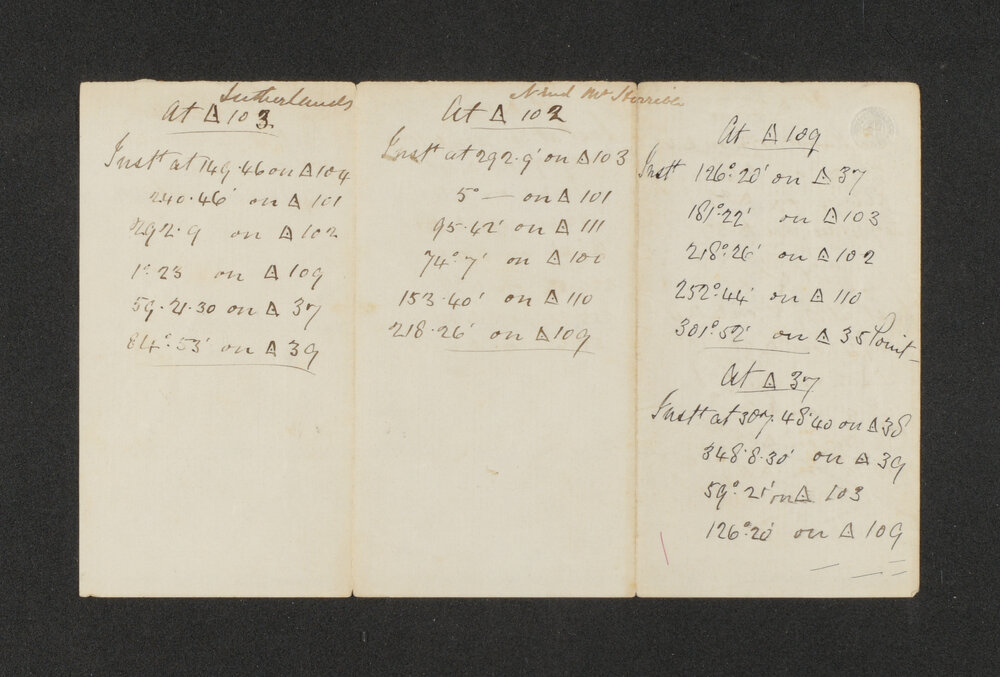 Sutherlands
At △ 103
Instt at 149.46 on △ 104
240.46' on △ 101
292.9 on △ 102
1°.23 on △ 109
59.21.30 on △ 37
84°.53' on △ 39
Mt Horrible
At △ 102
Instt at 292.9' on △ 103
5° — on △ 101
95.42' on △ 111
74°.7' on △ 100
153.40' on △ 110
218.26' on △ 109
At △ 109
Instt 126°.20' on △ 37
181°.22' on △ 103
218°.26' on △ 102
252°.44' on △ 110
301°.52' on △ 35 Point
At △ 37
Instt at 307.48'.40 on △ 38
348°.8.30' on △ 39
59°.21' on △ 103
126°.20' on △ 109